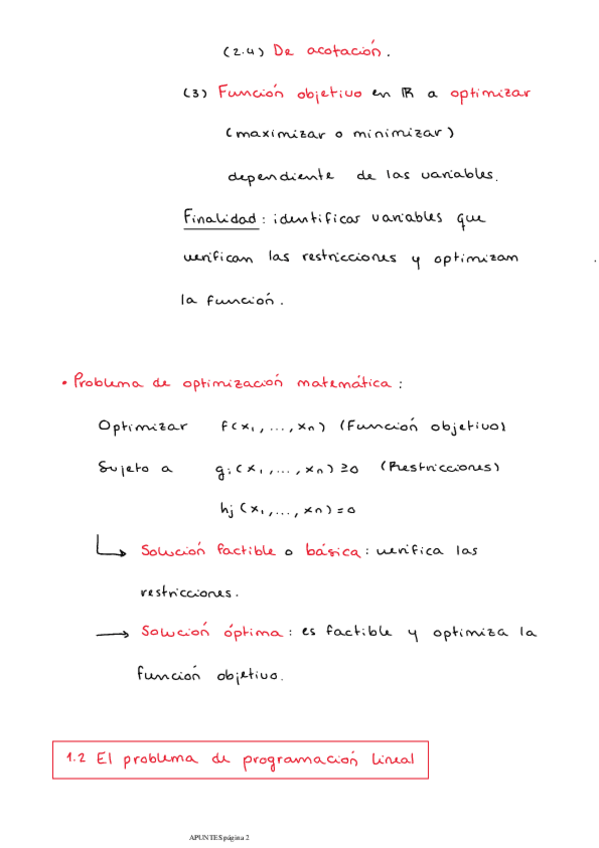 (2.4) De acotación.
(3) Función objetivo en ℝ a optimizar
(maximizar o minimizar)
dependiente de las variables.
Finalidad: identificar variables que
verifican las restricciones y optimizan
la función.
• Problema de optimización matemática:
Optimizar f(x₁,...,xₙ) (Función objetivo)
Sujeto a gᵢ(x₁,...,xₙ)≥0 (Restricciones)
hⱼ(x₁,...,xₙ)=0
↳ Solución factible o básica: verifica las
restricciones.
→ Solución óptima: es factible y optimiza la
función objetivo.
1.2 El problema de programación lineal
APUNTES página 2